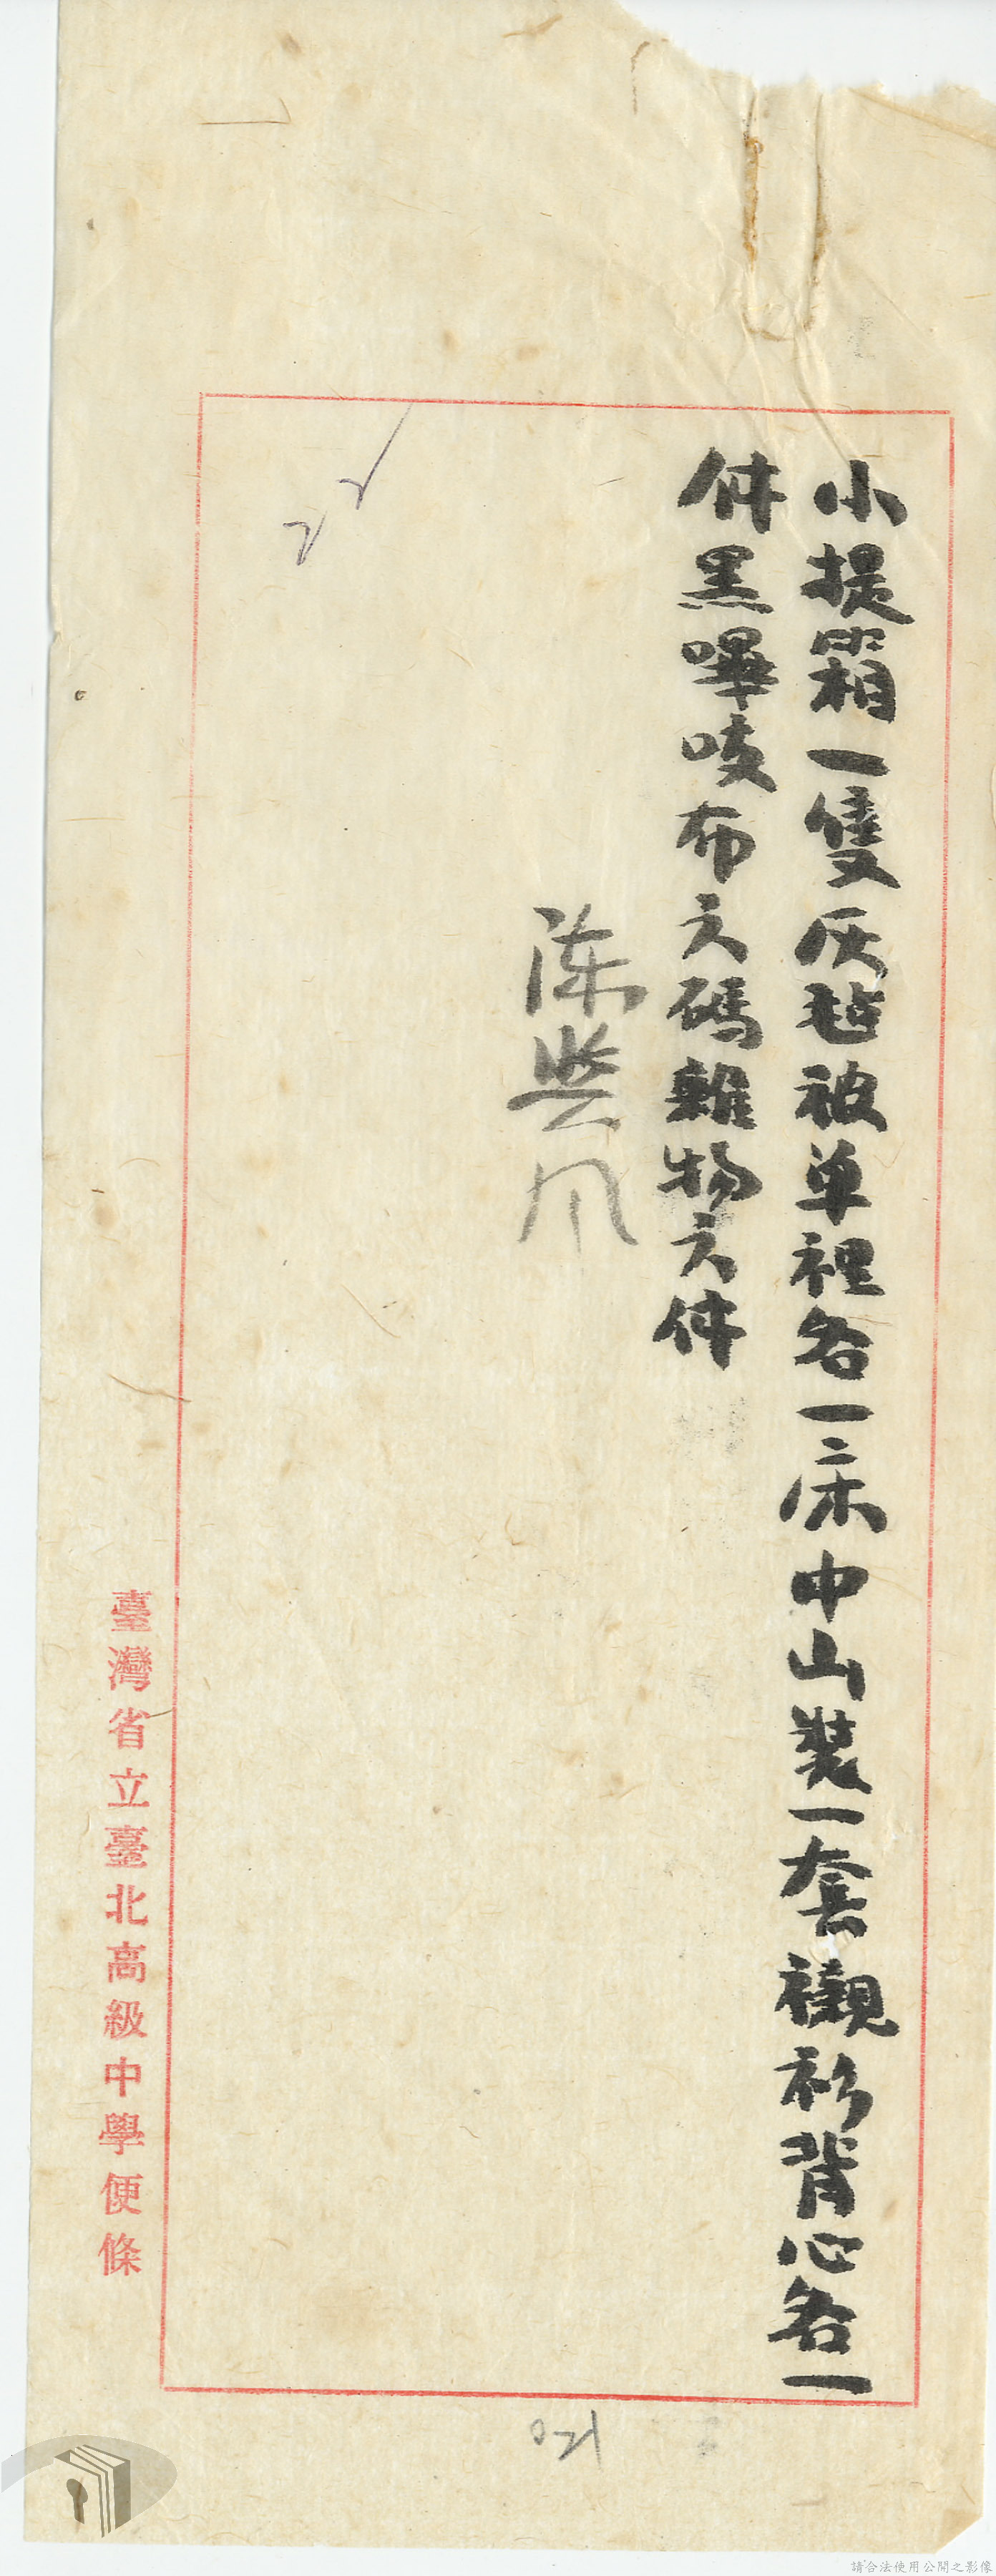 小提箱一隻灰毡被单裡各一床中山裝一套襯衫背心各一
件黑嗶吱布六碼雜物六件
陈
臺灣省立臺北高級中學便條
021
請合法使用公開之影像